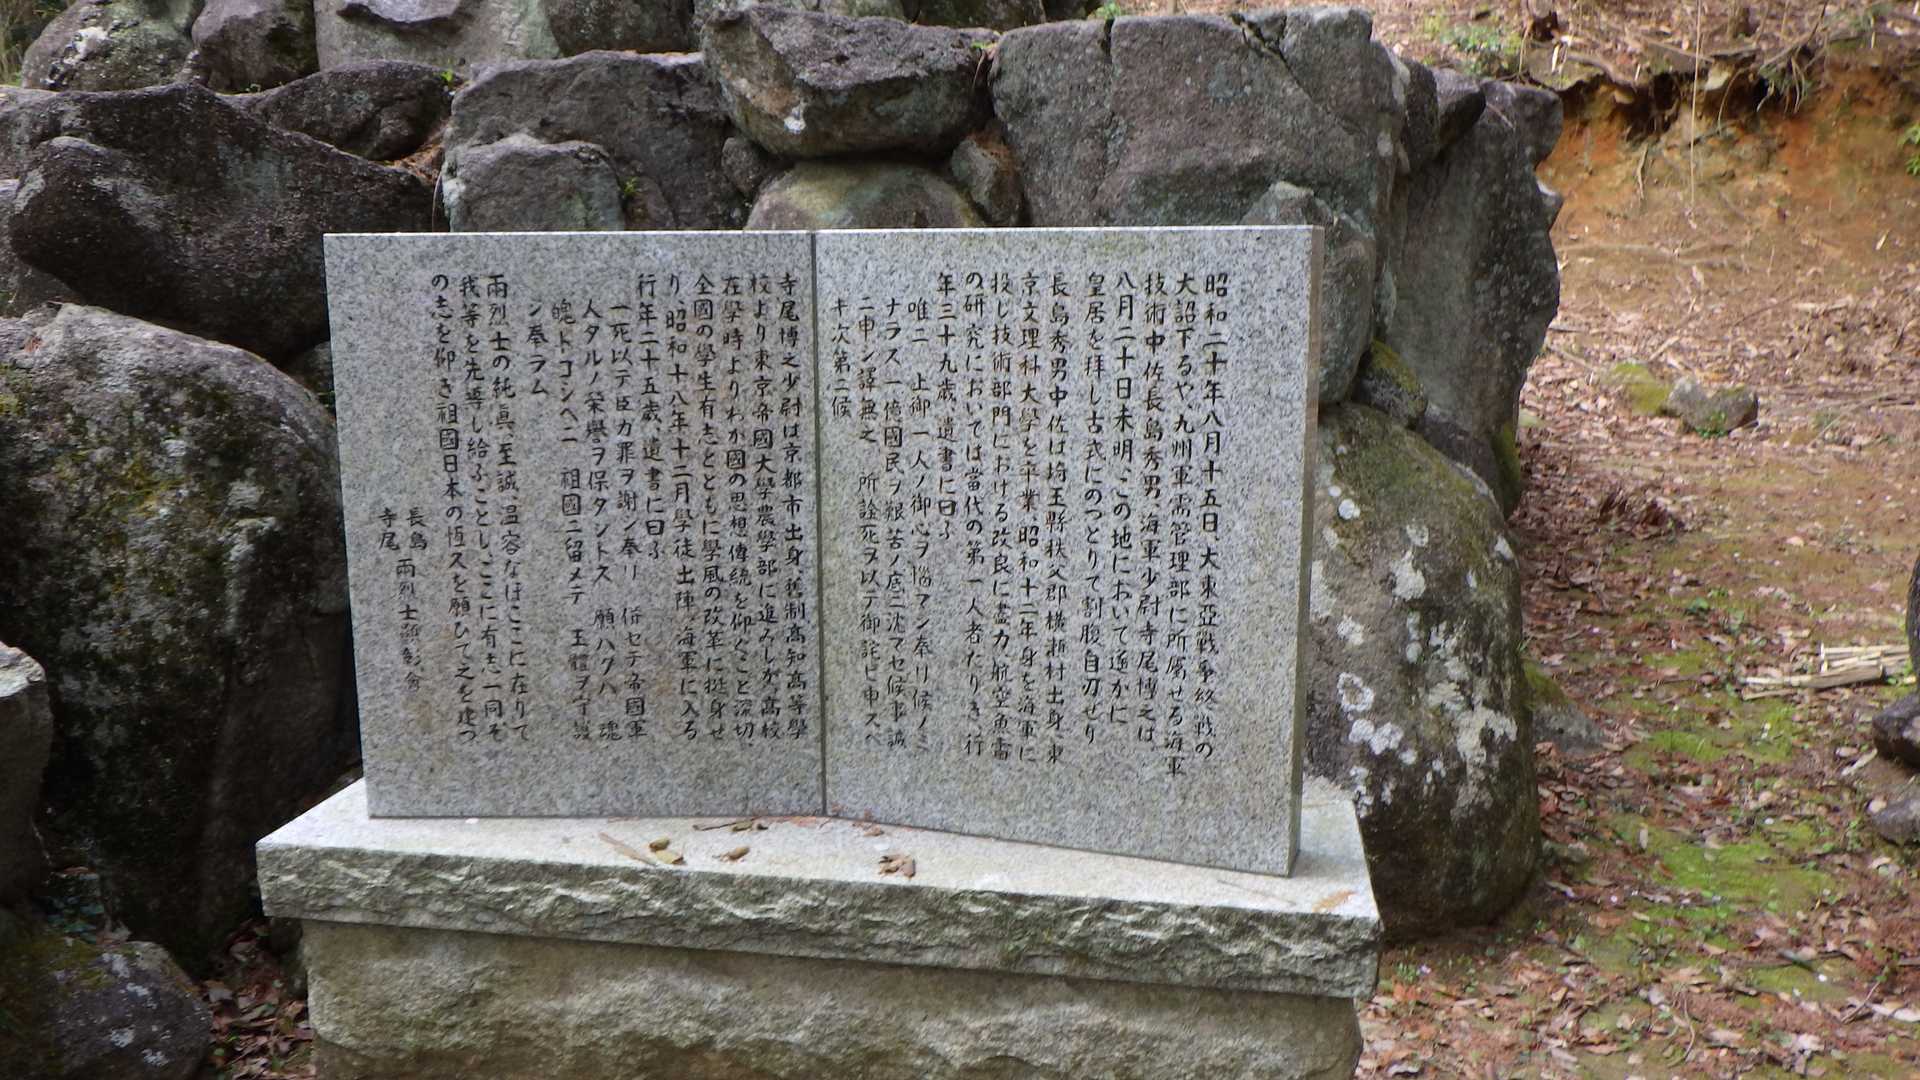 昭和二十年八月十五日、大東亞戰爭終戰の
大詔下るや、九州軍需管理部に所屬せる海軍
技術中佐長島秀男、海軍少尉寺尾博之は、
八月二十日未明、この地において遙かに
皇居を拝し古式にのっとりて割腹自刃せり
長島秀男中佐は埼玉縣秩父郡横瀬村出身、東
京文理科大學を卒業、昭和十二年身を海軍に
投じ技術部門における改良に盡力、航空魚雷
の研究においては當代の第一人者たりき、行
年三十九歳、遺書に曰ふ
唯二 上御一人ノ御心ヲ悩マシ奉リ候ノミ
ナラス一億國民ヲ艱苦ノ底ニ沈マセ候事誠
ニ申シ譯無之 所詮死ヲ以テ御詫ビ申スベ
キ次第二候
寺尾博之少尉は京都市出身、舊制高知高等學
校より東京帝國大學農學部に進みしが、高校
在學時よりわが國の思想傳統を仰ぐこと深切、
全國の學生有志とともに學風の改革に挺身せ
り、昭和十八年十二月學徒出陣、海軍に入る
行年二十五歳、遺書に曰ふ
一死以テ臣カ罪ヲ謝シ奉リ 併セテ帝國軍
人タルノ栄譽ヲ保タントス 願ハクハ 魂
魄トコシヘニ 祖國ニ留メテ 玉體ヲ守護
シ奉ラム
兩烈士の純眞至誠、温容なほここに在りて
我等を先導し給ふごとし、ここに有志一同、そ
の志を仰ぎ祖國日本の恆久を願ひて之を建つ
長島
寺尾 兩烈士顕彰會